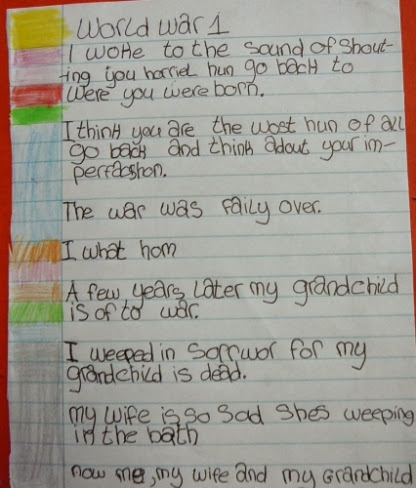 World war 1
I woke to the sound of shout-
ing you horriel hun go back to
were you were born.
I think you are the wost hun of all
go back and think adout your im-
perfacshon.
The war was faily over.
I what hom
A few years later my grandchild
is of to war.
I weeped in sorrwor for my
grandchild is dead.
my wife is so sad shes weeping
in the bath
now me, my wife and my Grandchild